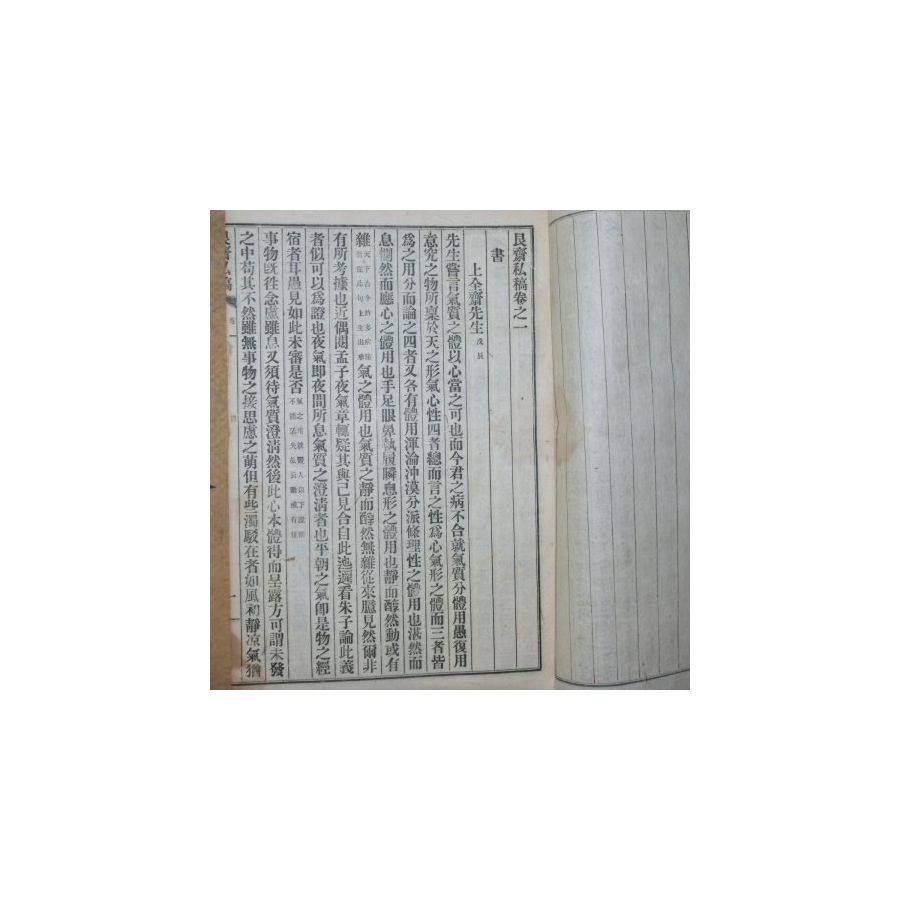 艮齋私稿卷之一
書
上全齋先生 戊辰
先生嘗言氣質之體以心當之可也而今君之病不合就氣質分體用愚復用
意究之物所稟於天之形氣心性四者總而言之性爲心氣形之體而三者皆
爲之用分而論之四者又各有體用渾淪沖漠分派條理性之體用也湛然而
息惻然而應心之體用也手足眼鼻執履瞬息形之體用也靜而醇然動或有
雜 天下古今許多病痛 句上生出來 氣之體用也氣質之靜而醇然無雜從來臆見然爾非
有所考據也近偶閱孟子夜氣章輒疑其與己見合自此遲遲看朱子論此義
者似可以爲證也夜氣卽夜間所息氣質之澄淸者也平朝之氣卽是物之經
宿者耳愚見如此未審是否
事物旣往念慮雖息又須待氣質澄淸然後此心本體得而呈露方可謂未發
之中苟其不然雖無事物之接思慮之萌但有些濁駁在者如風初靜凉氣猶
艮齋私稿 卷一